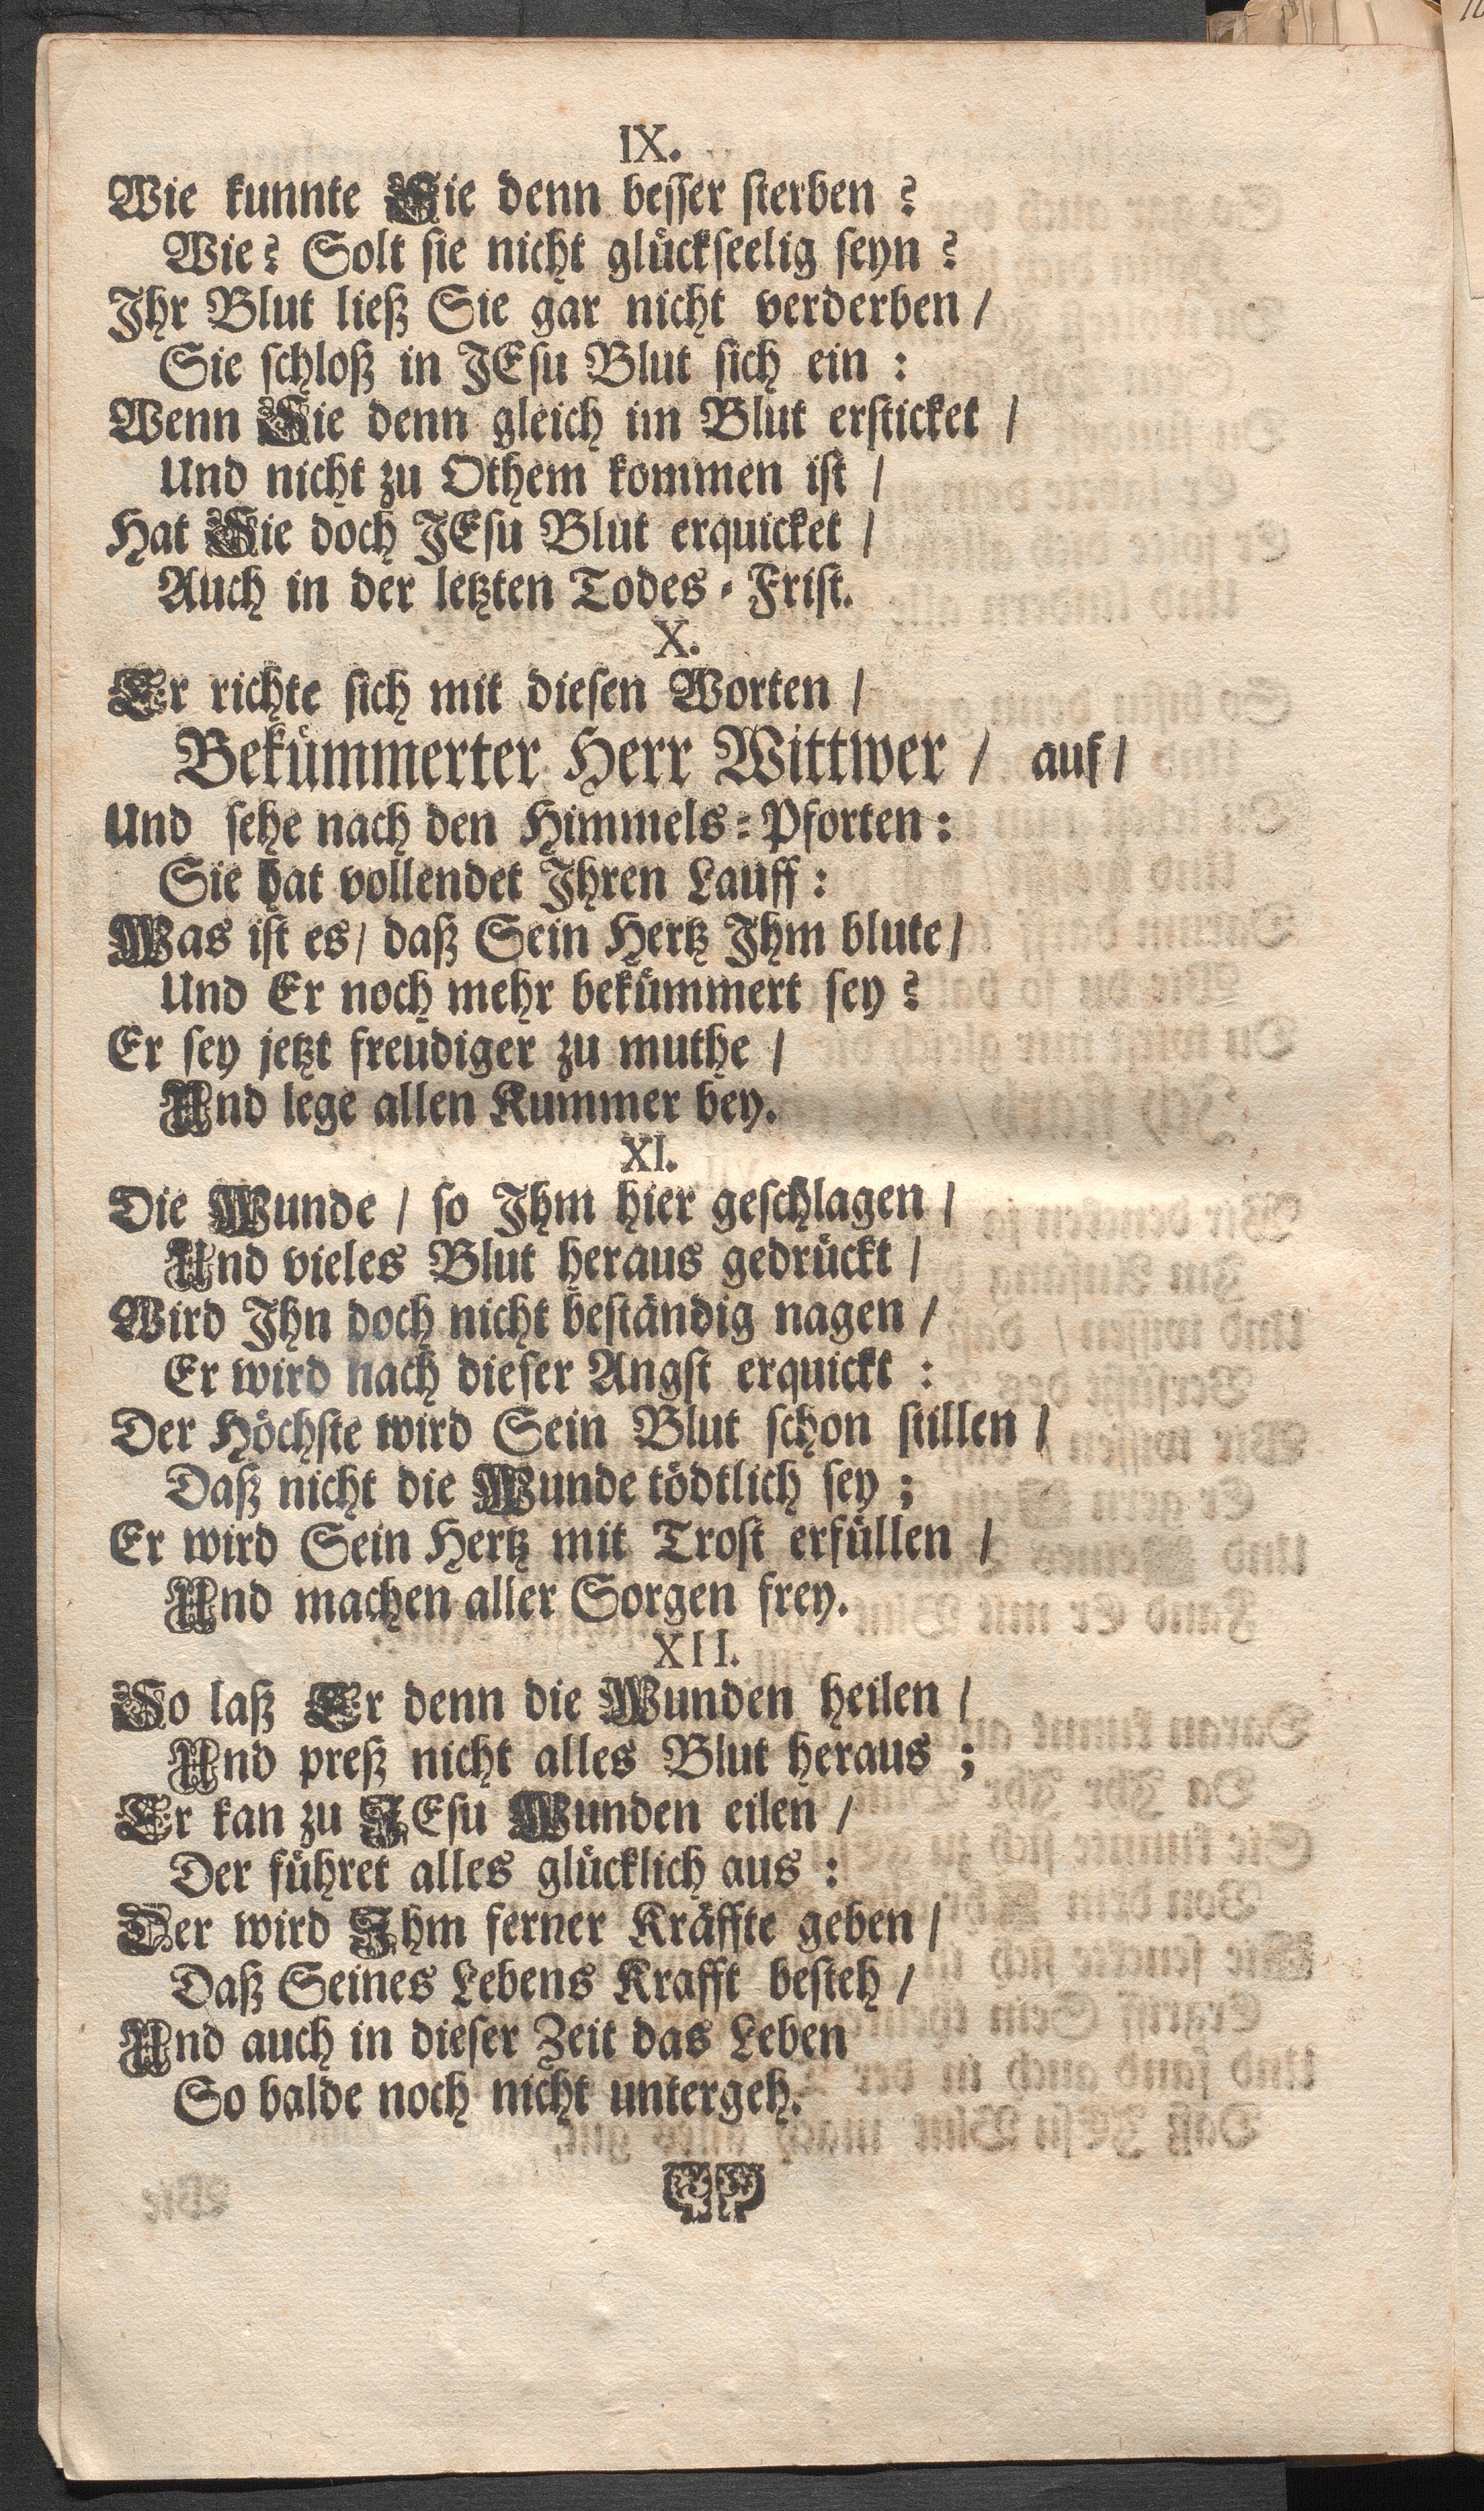 IX.
Wie kunnte Sie denn besser sterben?
Wie? Solt sie nicht glückseelig seyn?
Ihr Blut ließ Sie gar nicht verderben /
Sie schloß in JEsu Blut sich ein :
Wenn Sie denn gleich im Blut ersticket /
Und nicht zu Othem kommen ist /
Hat Sie doch JEsu Blut erquicket /
Auch in der letzten Todes-Frist.
X.
Er richte sich mit diesen Worten /
Bekümmerter Herr Wittwer / auf /
Und sehe nach den Himmels-Pforten :
Sie hat vollendet Ihren Lauff :
Was ist es / daß Sein Hertz Ihm blute /
Und Er noch mehr bekümmert sey?
Er sey jetzt freudiger zu muthe /
Und lege allen Kummer bey.
XI.
Die Wunde / so Ihm hier geschlagen /
Und vieles Blut heraus gedrückt /
Wird Ihn doch nicht beständig nagen /
Er wird nach dieser Angst erquickt :
Der Höchste wird Sein Blut schon stillen /
Daß nicht die Wunde tödtlich sey ;
Er wird Sein Hertz mit Trost erfüllen /
Und machen aller Sorgen frey.
XII.
So laß Er denn die Wunden heilen /
Und preß nicht alles Blut heraus ;
Er kan zu JEsu Wunden eilen /
Der führet alles glücklich aus :
Der wird Ihm ferner Kräffte geben /
Daß Seines Lebens Krafft besteh /
Und auch in dieser Zeit das Leben
So balde noch nicht untergeh.